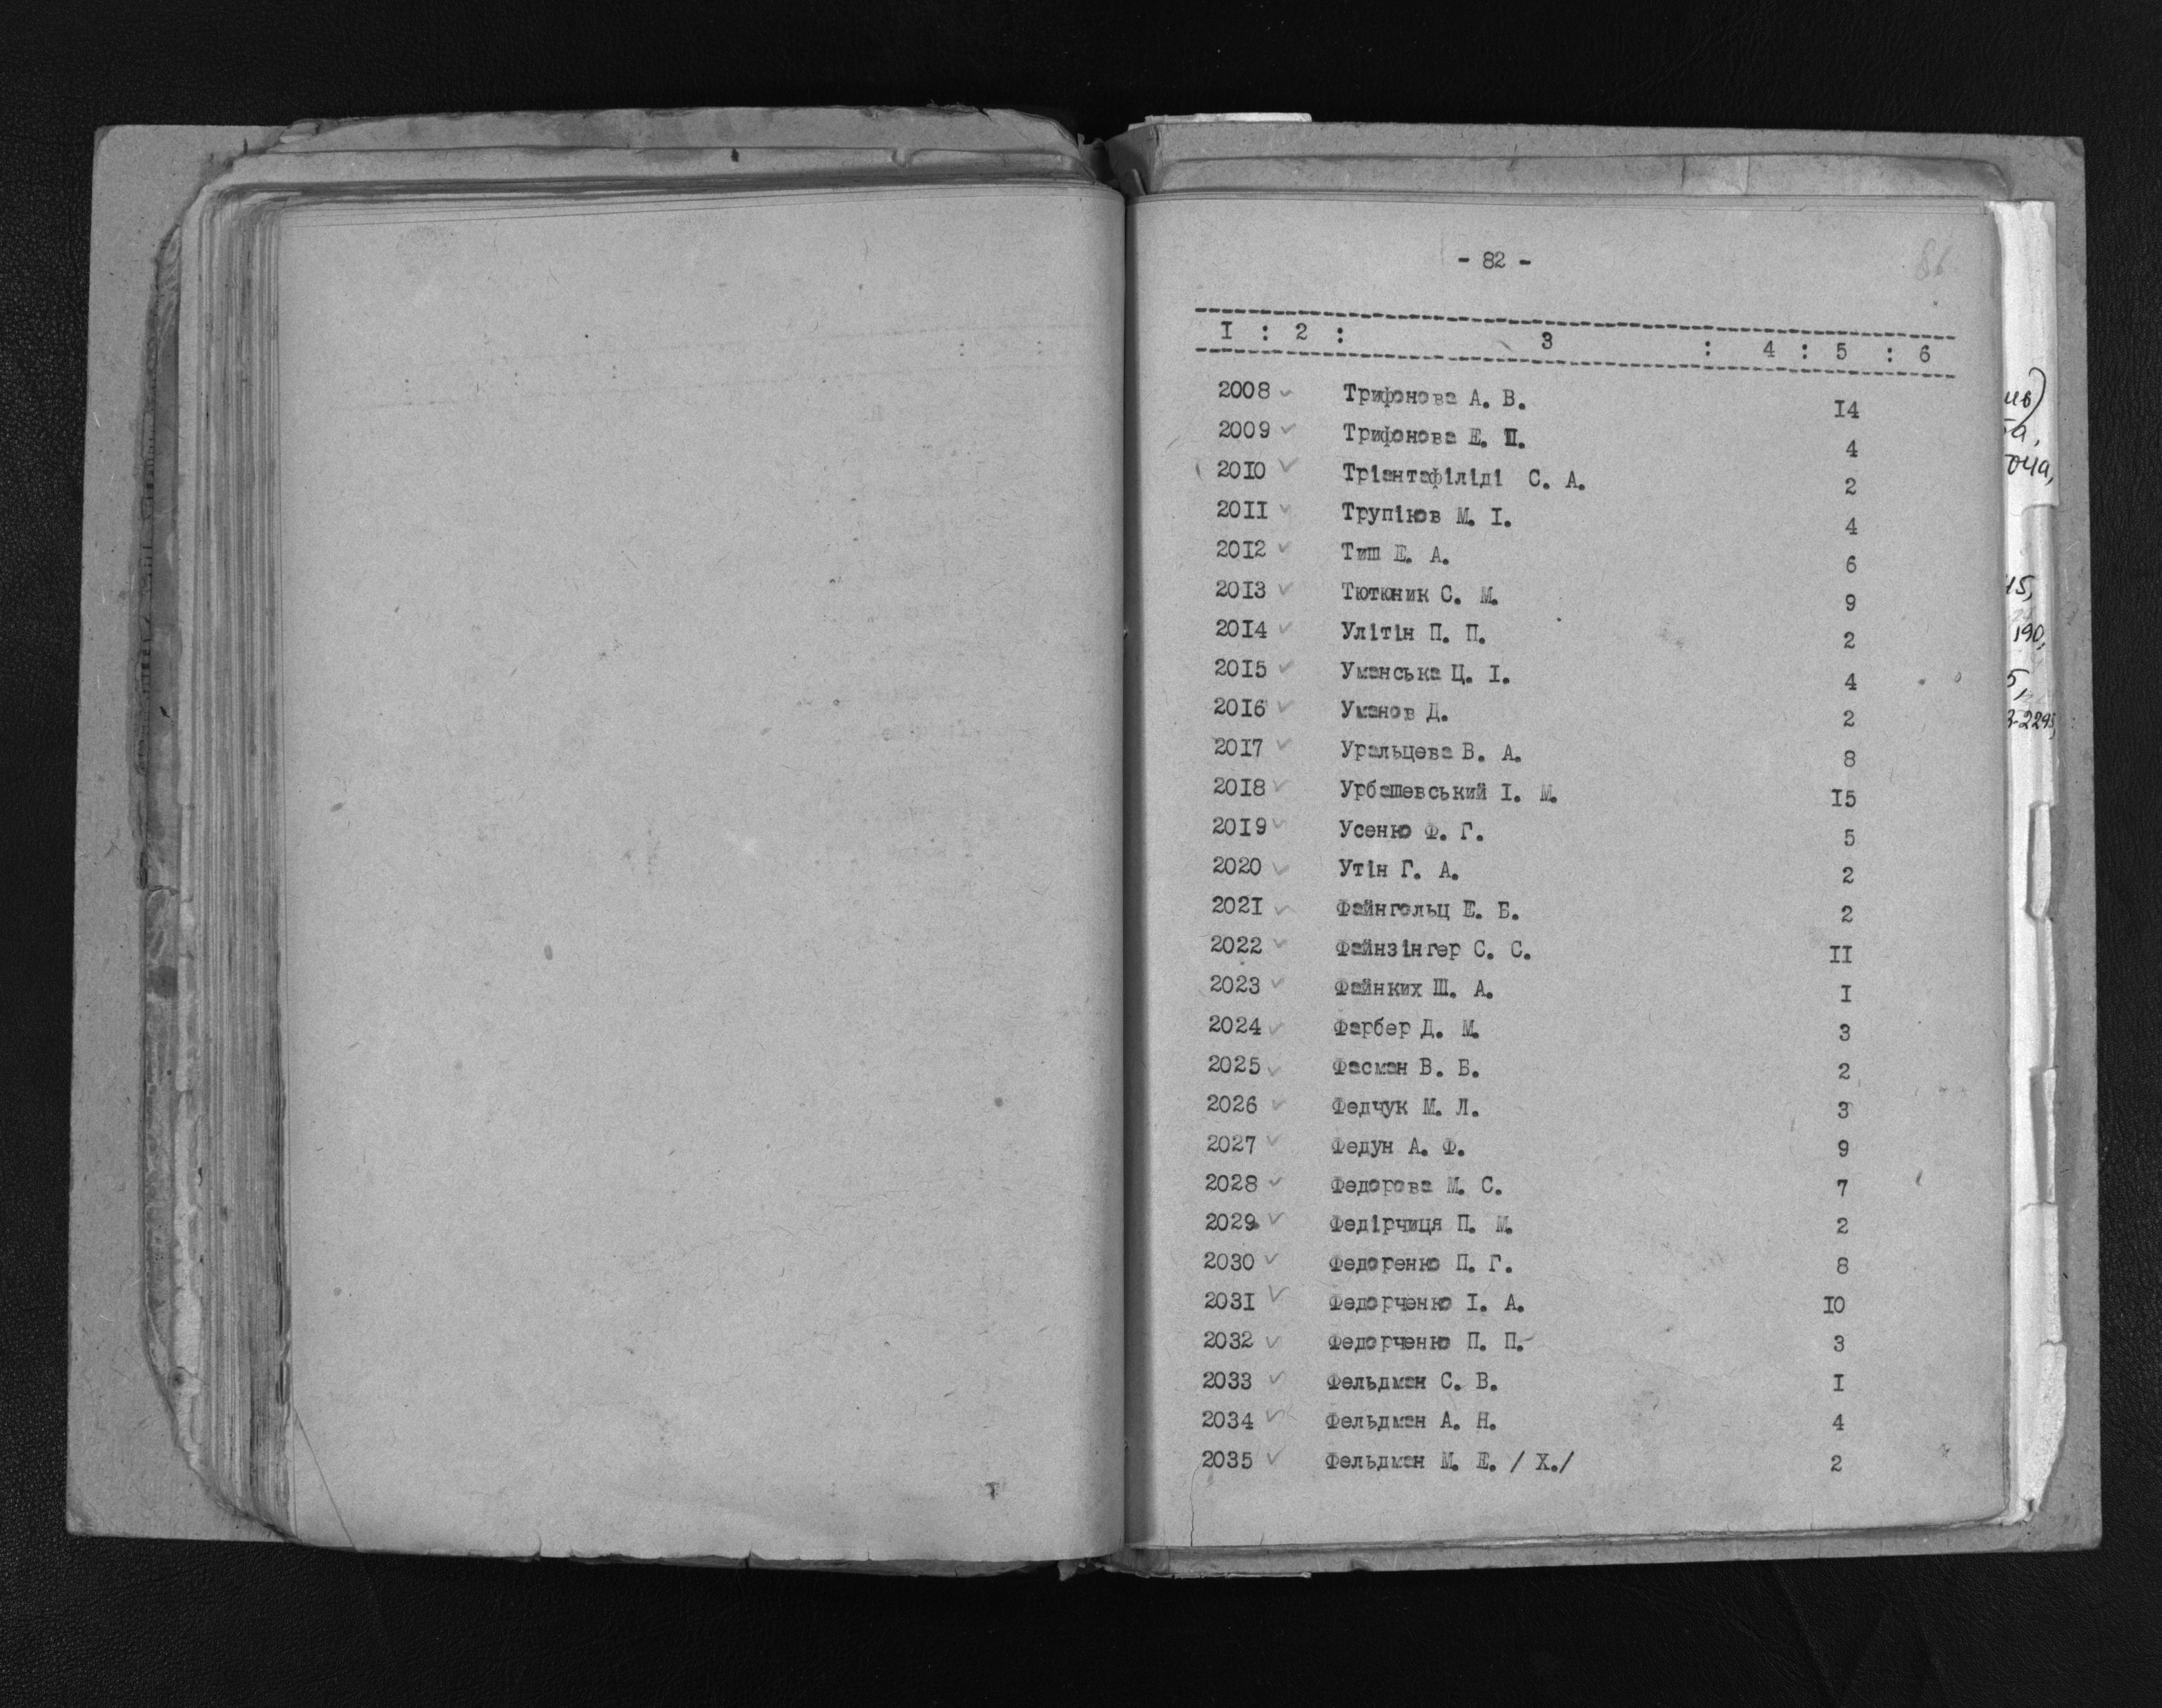 - 82 -
86
I : 2 : 3 : 4 : 5 : 6
2008 Трифонова А. В. 14
2009 Трифонова Е. П. 4
2010 Тріантафіліді С. А. 2
2011 Трупіков М. І. 4
2012 Тиш Е. А. 6
2013 Тютюник С. М. 9
2014 Улітін П. П. 2
2015 Уманська Ц. І. 4
2016 Уманов Д. 2
2017 Уральцева В. А. 8
2018 Урбашевський І. М. 15
2019 Усенко Ф. Г. 5
2020 Утін Г. А. 2
2021 Файнгольц Е. Б. 2
2022 Файнзінгер С. С. II
2023 Файнких Ш. А. I
2024 Фарбер Д. М. 3
2025 Фасман В. Б. 2
2026 Федчук М. Л. 3
2027 Федун А. Ф. 9
2028 Федорова М. С. 7
2029 Федірчиця П. М. 2
2030 Федоренко П. Г. 8
2031 Федорченко І. А. 10
2032 Федорченко П. П. 3
2033 Фельдман С. В. I
2034 Фельдман А. Н. 4
2035 Фельдман М. Е. / Х./ 2
190,